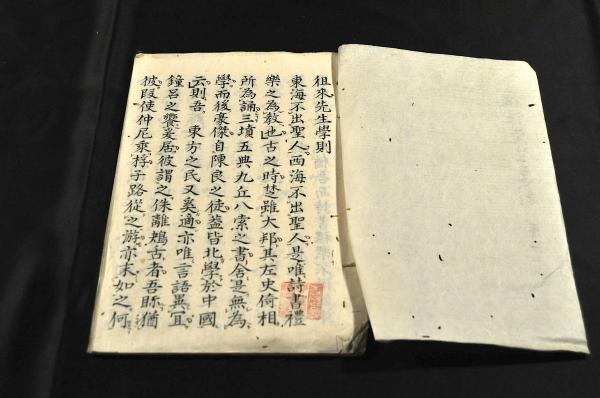 徂來先生學則
東海不出聖人西海不出聖人是唯詩書禮
樂之為敎也古之時楚雖大邦其左史倚相
所為誦三墳五典九丘八索之書舍是無為
學而後豪傑自陳良之徒葢皆北學於中國
云則吾 東方之民又奚適亦唯言語異宜
鐘呂之饗爰居彼謂之侏離鴂舌者吾眎猶
彼叚使仲尼乘桴子路從之游亦末如之何